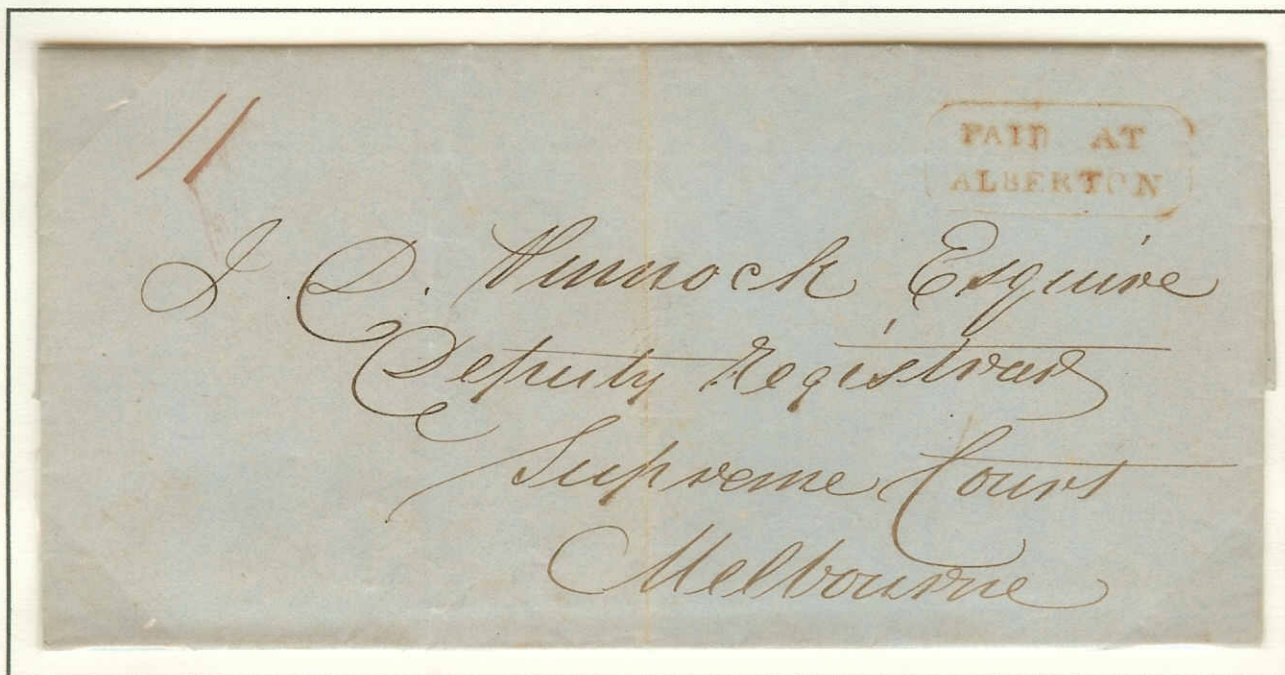 11
PAID AT
ALBERTON
J. D. Pinnock Esquire
Deputy Registrar
Supreme Court
Melbourne